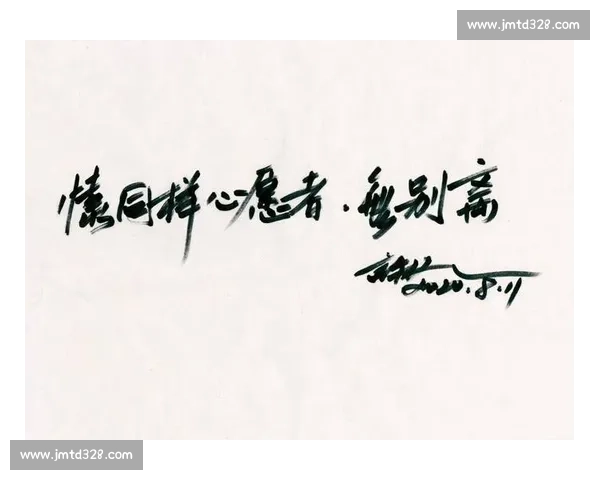 www.jmtd328.com
懷同样心愿者.無别离
2020.8.11
www.jmtd328.com